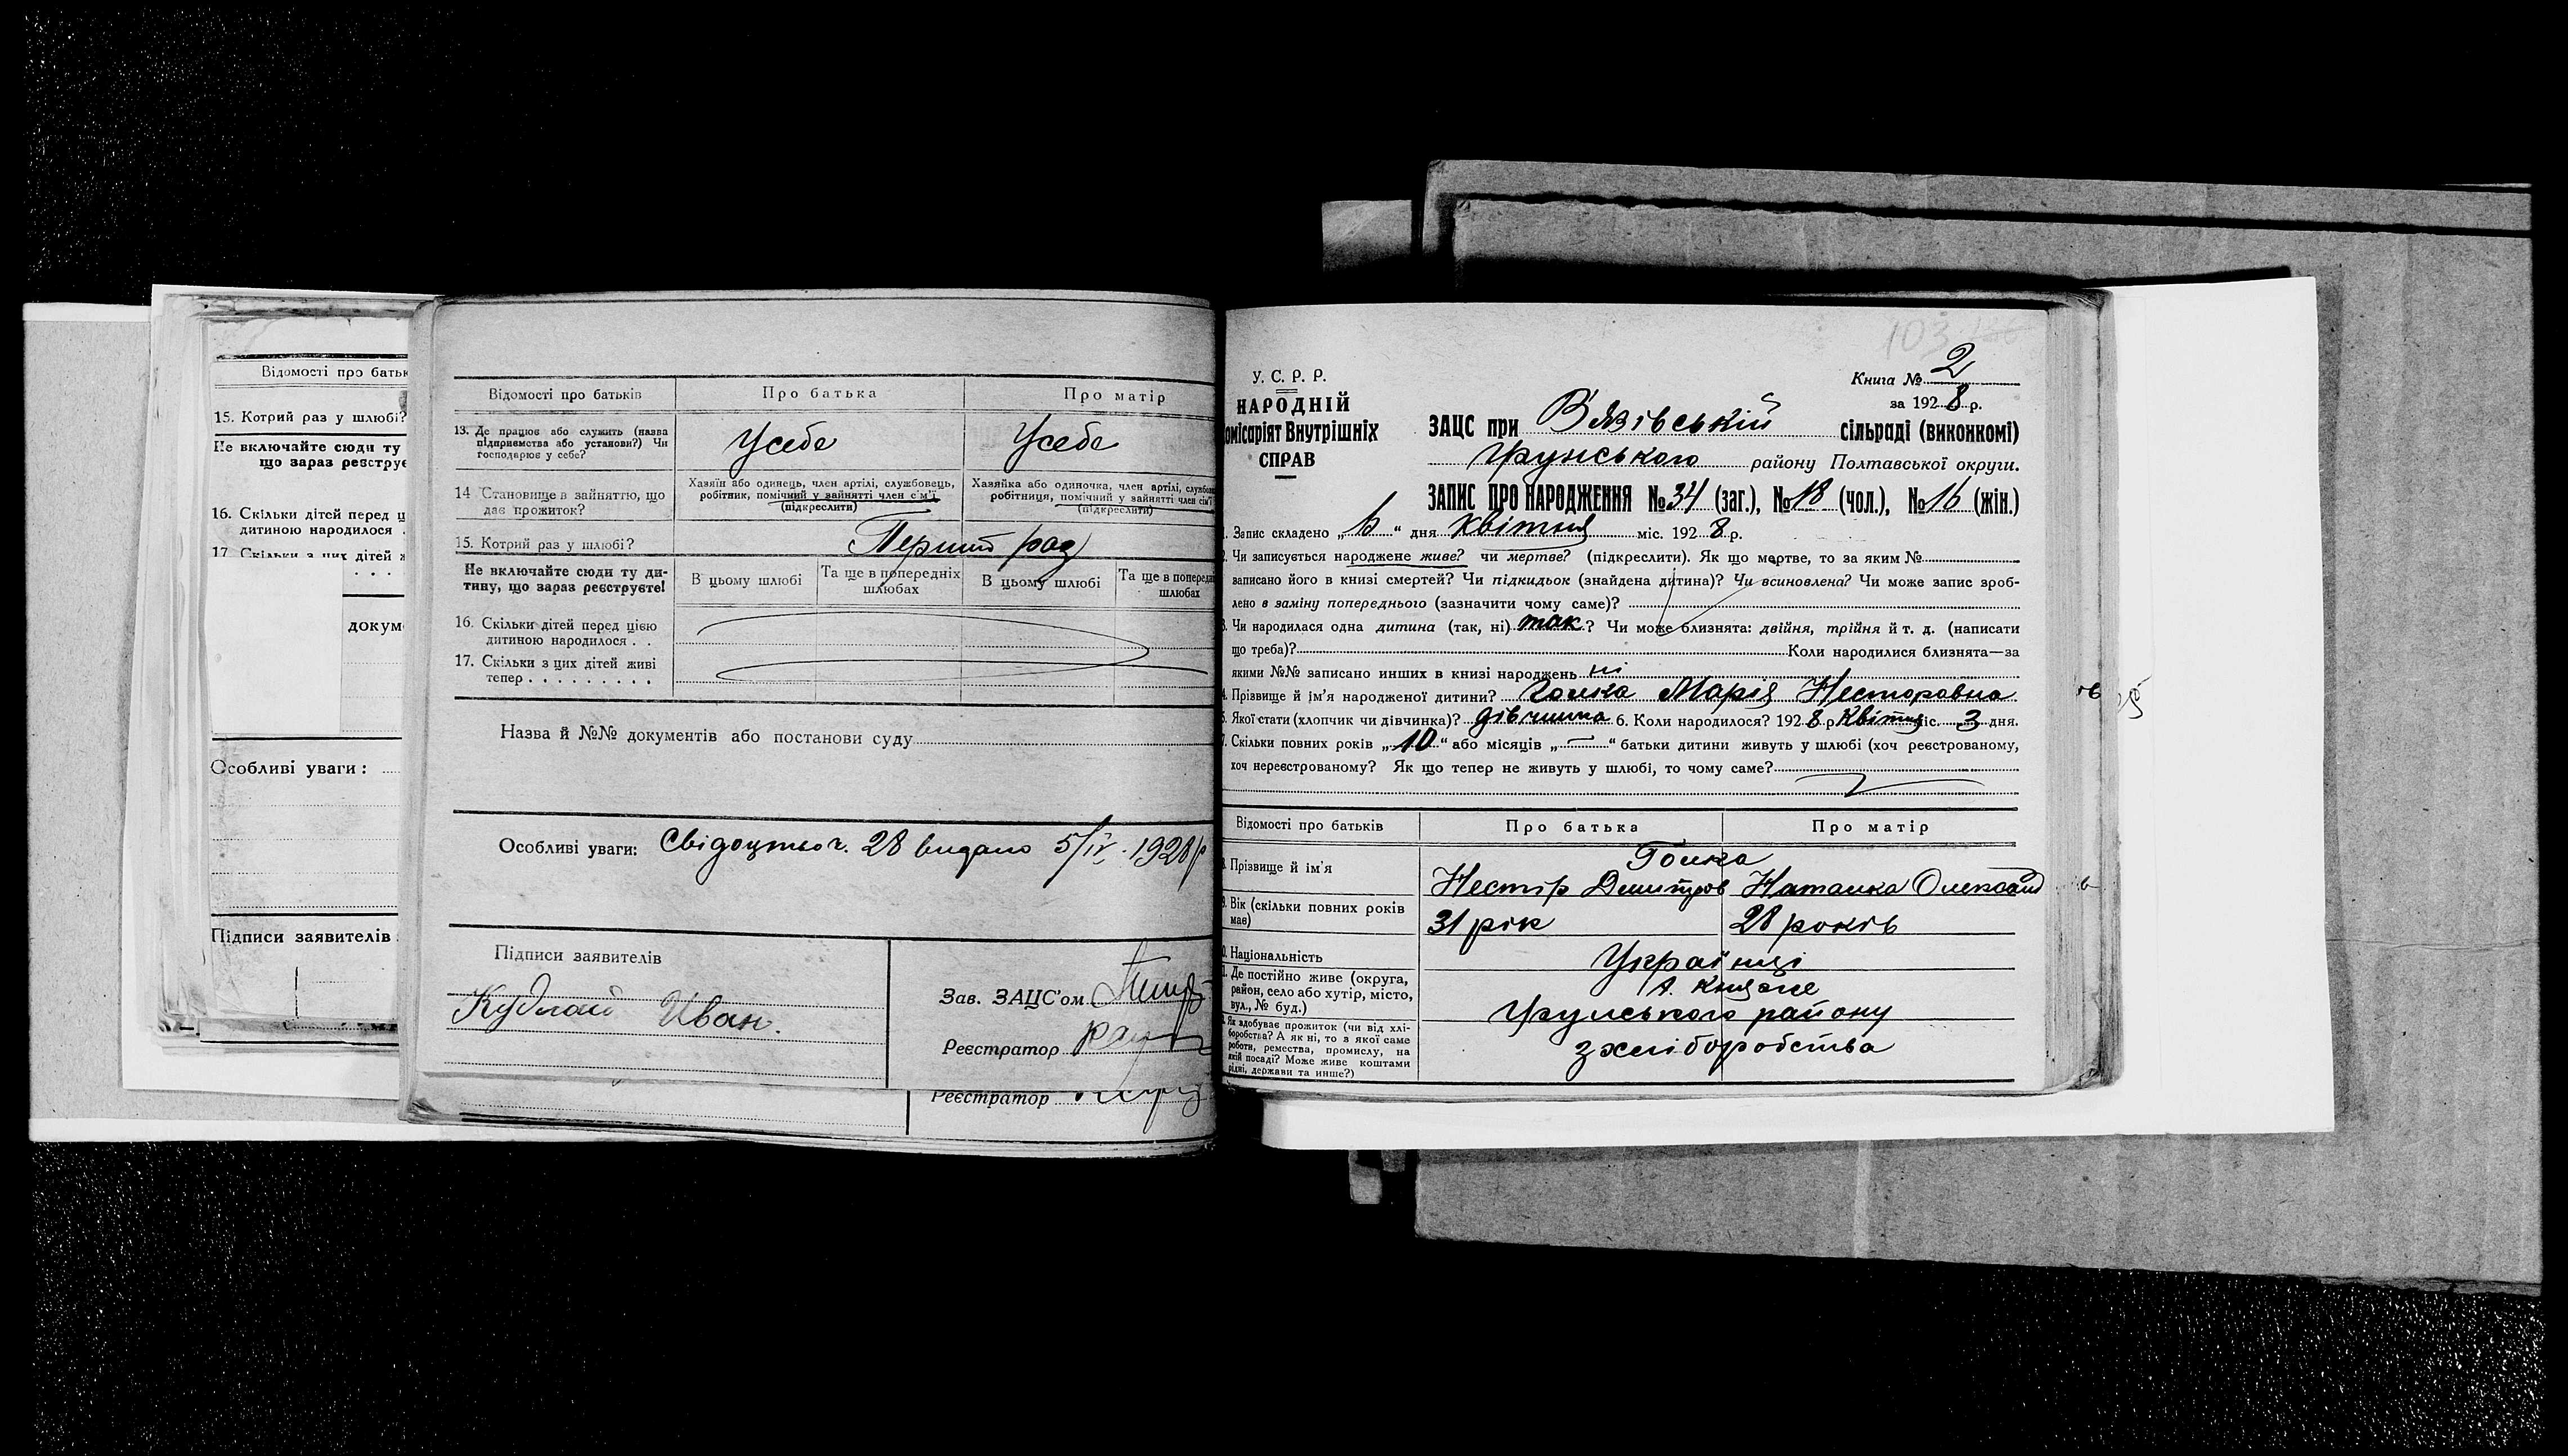 Відомості про батьк
15. Котрий раз у шлюбі?
Не включайте сюди ту
що зараз реєструє
16. Скільки дітей перед ц
дитиною народилося .
17. Скільки з цих дітей ж
. . . .
докум
Особливі уваги:
Підписи заявителів
Відомості про батьків
Про батька
Про матір
13. Де працює або служить (назва
підприємства або установи?) Чи
господарює у себе?
Усебе
Усебе
14 Становище в зайняттю, що
дає прожиток?
Хазяїн або одинець, член артілі, службовець,
робітник, помічний у зайнятті член сім'ї
(підкреслити)
Хазяйка або одиночка, член артілі, службов
робітниця, помічний у зайнятті член сім'ї
(підкреслити)
15. Котрий раз у шлюбі?
Перший раз
Не включайте сюди ту ди-
тину, що зараз реєструєте!
В цьому шлюбі
Та ще в попередніх
шлюбах
В цьому шлюбі
Та ще в поперед
шлюбах
16. Скільки дітей перед цією
дитиною народилося . .
17. Скільки з цих дітей живі
тепер . . . . . . . . .
Назва й №№ документів або постанови суду
Особливі уваги: Свідоцтво ч. 28 видано 5/IV 1928 р
Підписи заявителів
Кудлай Иван.
Зав. ЗАЦС'ом
Реєстратор
Реєстратор
103
У. С. Р. Р.
НАРОДНІЙ
омісаріят Внутрішніх
СПРАВ
Книга № 2
за 1928 р.
ЗАЦС при В'язівській сільраді (виконкомі)
Грунського району Полтавської округи.
ЗАПИС ПРО НАРОДЖЕННЯ № 34 (заг.), № 18 (чол.), № 16 (жін.)
. Запис складено „ “ дня квітня міс. 1928 р.
. Чи записується народжене живе? чи мертве? (підкреслити). Як що мертве, то за яким №
записано його в книзі смертей? Чи підкидьок (знайдена дитина)? Чи всиновлена? Чи може запис зроб-
лено в заміну попереднього (зазначити чому саме)?
3. Чи народилася одна дитина (так, ні) так ? Чи може близнята: двійня, трійня й т. д. (написати
що треба)? Коли народилися близнята—за
якими №№ записано инших в книзі народжень ні
4. Прізвище й ім'я народженої дитини? Марія Несторовна
5. Якої стати (хлопчик чи дівчинка)? дівчинка 6. Коли народилося? 1928 р Квітня іс. 3 дня.
7. Скільки повних років „ 10 “ або місяців „ — “ батьки дитини живуть у шлюбі (хоч реєстрованому,
хоч нереєстрованому? Як що тепер не живуть у шлюбі, то чому саме?
Відомості про батьків
Про батька
Про матір
8. Прізвище й ім'я
Нестір Дмитров
Наталка Олександ
9. Вік (скільки повних років
має)
31 рік
28 років
0. Національність
Українці
1. Де постійно живе (округа,
район, село або хутір, місто,
вул., № буд.)
Грунського району
. Як здобуває прожиток (чи від хлі-
боробства? А як ні, то з якої саме
роботи, ремества, промислу, на
якій посаді? Може живе коштами
рідні, держави та инше?)
з хліборобства